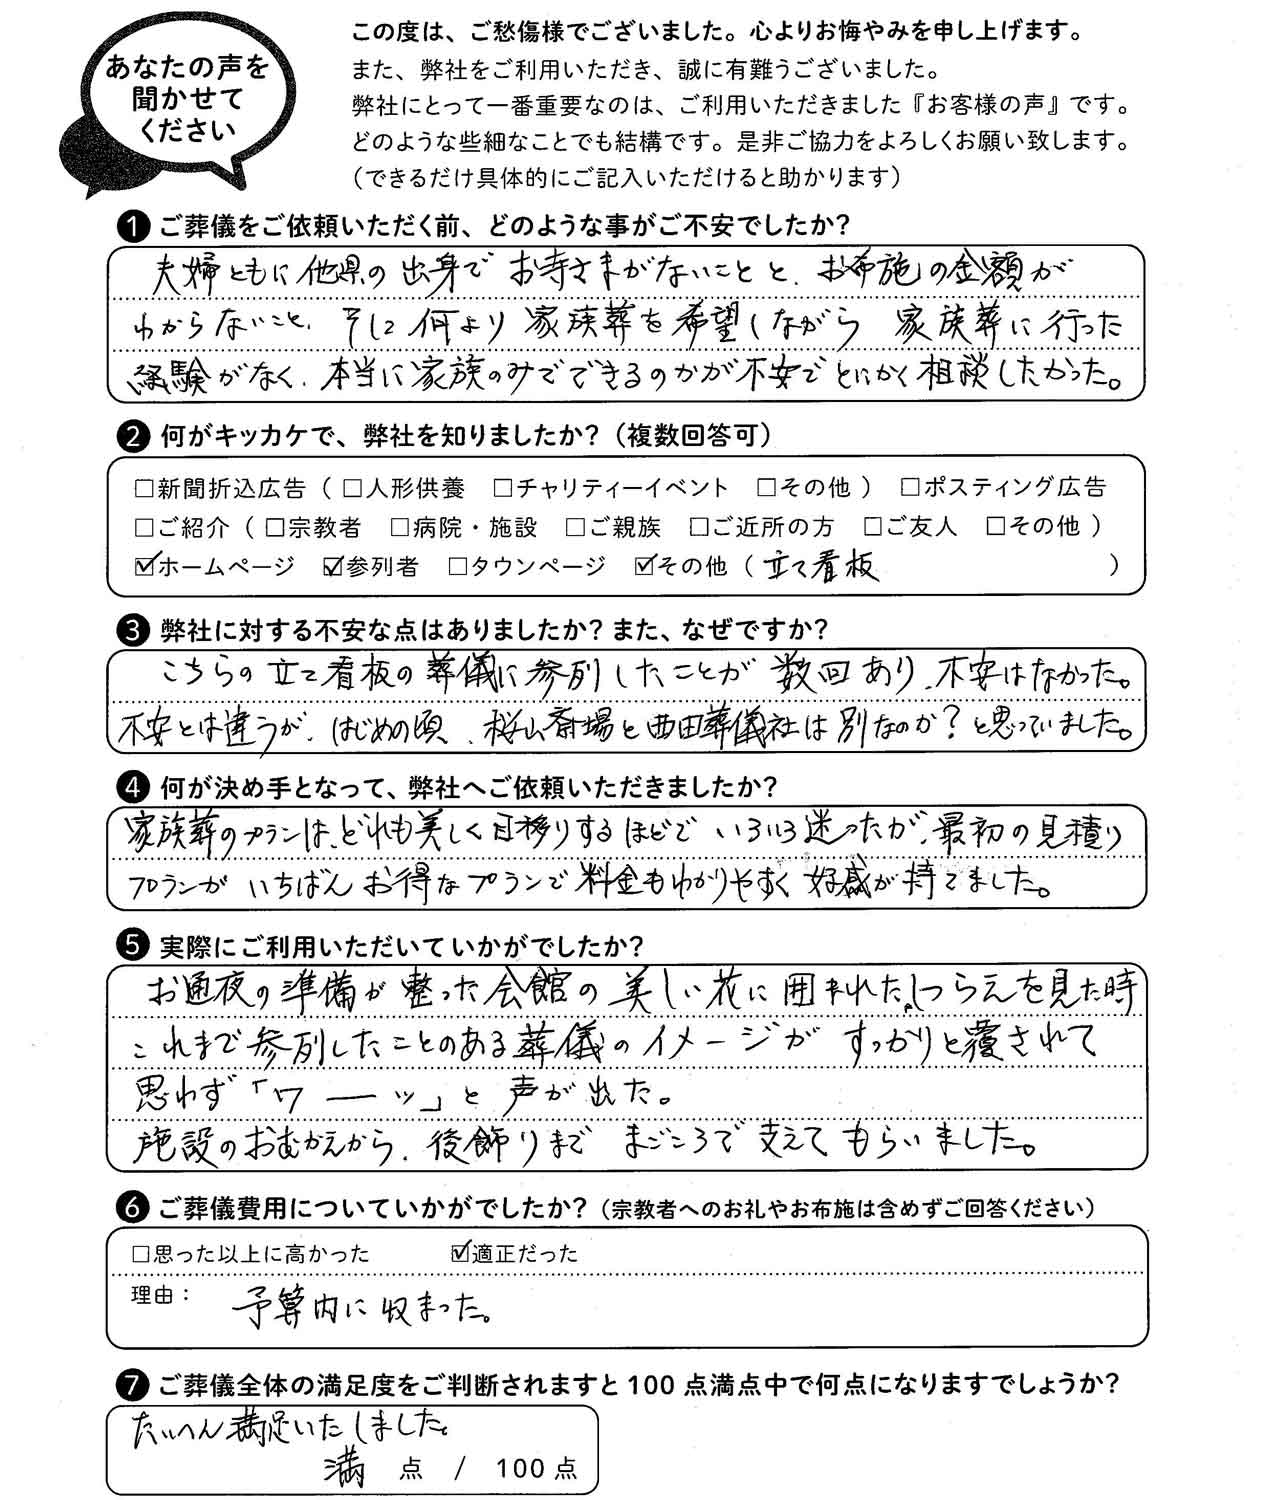 あなたの声を
聞かせて
ください
この度は、ご愁傷様でございました。心よりお悔やみを申し上げます。
また、弊社をご利用いただき、誠に有難うございました。
弊社にとって一番重要なのは、ご利用いただきました『お客様の声』です。
どのような些細なことでも結構です。是非ご協力をよろしくお願い致します。
（できるだけ具体的にご記入いただけると助かります）
❶ ご葬儀をご依頼いただく前、どのような事がご不安でしたか？
夫婦ともに他県の出身で お寺さまがないことと、お布施の金額が
わからないこと、そして何より 家族葬を希望しながら 家族葬に行った
経験がなく、本当に家族のみでできるのかが不安でとにかく相談したかった。
❷ 何がキッカケで、弊社を知りましたか？（複数回答可）
□新聞折込広告（ □人形供養 □チャリティーイベント □その他 ） □ポスティング広告
□ご紹介（ □宗教者 □病院・施設 □ご親族 □ご近所の方 □ご友人 □その他 ）
☑ホームページ ☑参列者 □タウンページ ☑その他（ 立て看板 ）
❸ 弊社に対する不安な点はありましたか？また、なぜですか？
こちらの立て看板の葬儀に参列したことが 数回あり、不安はなかった。
不安とは違うが、はじめの頃、桜山斎場と西田葬儀社は別なのか？と思っていました。
❹ 何が決め手となって、弊社へご依頼いただきましたか？
家族葬のプランは、どれも美しく目移りするほどで いろいろ迷ったが、最初の見積り
プランが いちばん お得なプランで 料金もわかりやすく 好感が持てました。
❺ 実際にご利用いただいていかがでしたか？
お通夜の準備が整った会館の 美しい花に囲まれた、しつらえを見た時
これまで参列したことのある葬儀のイメージが すっかりと覆されて
思わず「ワーーッ」と 声が出た。
施設のおむかえから、後飾りまで まごころで支えてもらいました。
❻ ご葬儀費用についていかがでしたか？（宗教者へのお礼やお布施は含めずご回答ください）
□思った以上に高かった ☑適正だった
理由： 予算内に収まった。
❼ ご葬儀全体の満足度をご判断されますと100点満点中で何点になりますでしょうか？
たいへん満足いたしました。
満 点 / 100点